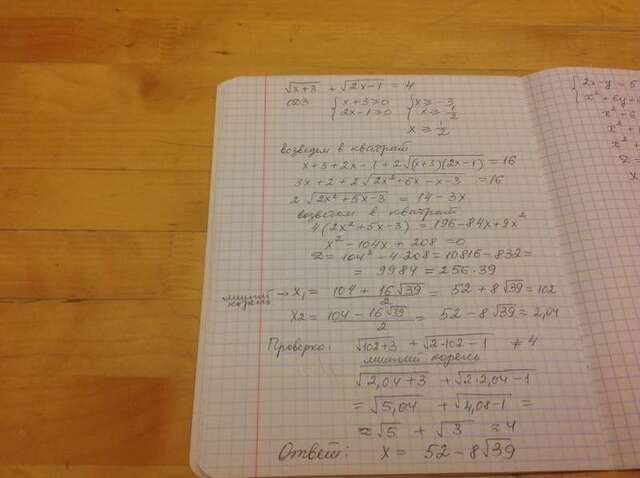 √x+3 + √2x-1 = 4
ОДЗ { x+3≥0 { x≥-3
2x-1≥0 x≥ 1/2
x ≥ 1/2
возведем в квадрат
x+3+2x-1+2√(x+3)(2x-1) = 16
3x+2+2√2x²+6x-x-3 = 16
2√2x²+5x-3 = 14-3x
возведем в квадрат
4(2x²+5x-3) = 196-84x+9x²
x²-104x+208=0
D=104²-4·208=10816-832=
= 9984 = 256·39
лишний корень → x₁ = (104+16√39)/2 = 52+8√39=102
x2= (104-16√39)/2 = 52-8√39=2,04
Проверка: √102+3 + √2·102-1 ≠ 4
лишний корень
√2,04+3 + √2·2,04-1
= √5,04 + √4,08-1 =
≈ √5 + √3 ≈ 4
Ответ: x = 52-8√39
{ 2x-y=5
x²+6y
x²+6
x²+
x²+
x